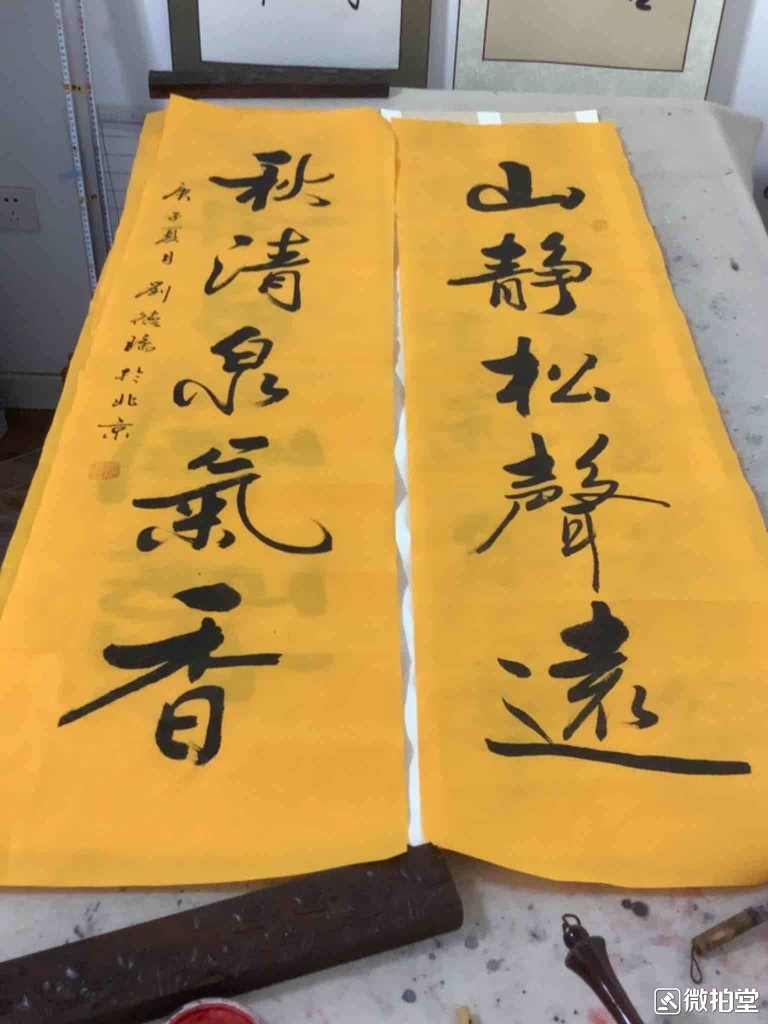 山靜松聲遠
秋清泉氣香
庚子夏月劉德 於北京
微拍堂